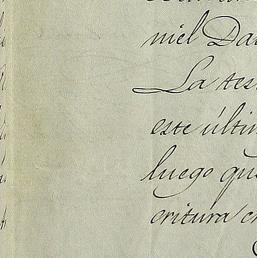 niel Da
La tes
este últi
luego qu
critura c